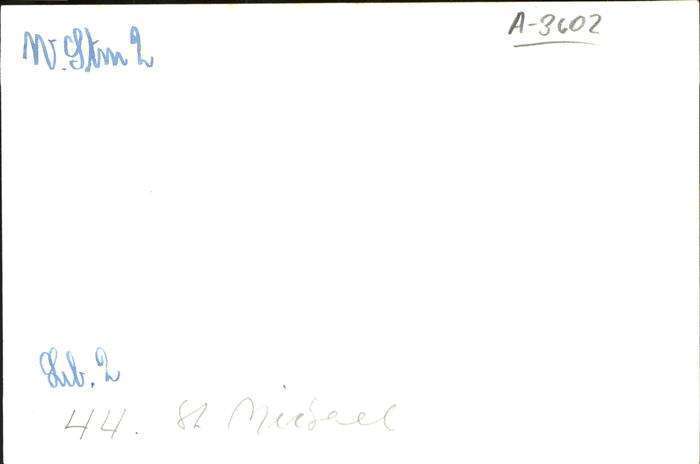 A-3602
W. Stm 2
Lib. 2
44. St Michael